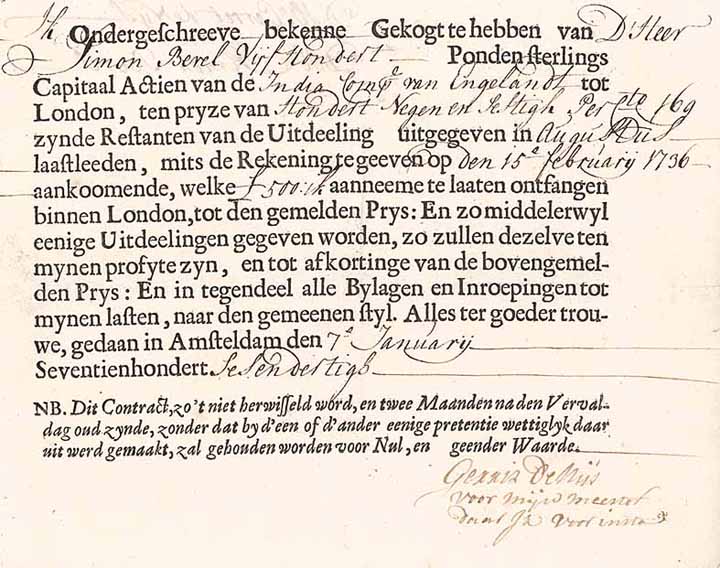 Ik Ondergeschreeve bekenne Gekogt te hebben van D'Heer
Simon Berel Vijf Hondert Ponden sterlings
Capitaal Actien van de India Comp.e van Engelandt tot
London, ten pryze van Hondert Negen en Sestigh Per cto 169
zynde Restanten van de Uitdeeling uitgegeven in Augustus
laastleeden, mits de Rekening te geeven op den 15.e februarij 1736
aankoomende, welke £ 500:ik aanneeme te laaten ontfangen
binnen London, tot den gemelden Prys: En zo middelerwyl
eenige Uitdeelingen gegeven worden, zo zullen dezelve ten
mynen profyte zyn, en tot afkortinge van de bovengemel-
den Prys: En in tegendeel alle Bylagen en Inroepingen tot
mynen lasten, naar den gemeenen styl. Alles ter goeder trou-
we, gedaan in Amsteldam den 7.e Januarij
Seventienhondert Sesendertigh
NB. Dit Contract, zo't niet herwisseld word, en twee Maanden na den Verval-
dag oud zynde, zonder dat by d'een of d'ander eenige pretentie wettiglyk daar
uit werd gemaakt, zal gehouden worden voor Nul, en geender Waarde.
Gerrit De Nijs
voor mijn meester
daar Ik voor insta